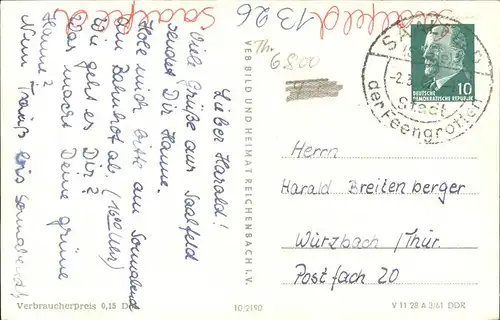 Saalfeld 1326
Saalfe
Thr.
6800
Lieber Harald!
Viele Grüße aus Saalfeld
sendet Dir Hanne.
Hole mich bitte am Sonnabend
vom Bahnhof ab. (16 00 Uhr)
Wie geht es Dir?
Was macht Deine grüne
Hanne?
Nun Tschüß bis Sonnabend
VEB BILD UND HEIMAT REICHENBACH I. V.
SAALFELD
-2.3.
Stadt
der Feengrotten
10
DEUTSCHE
DEMOKRATISCHE REPUBLIK
Herrn
Harald Breitenberger
Würzbach/Thür.
Postfach 20
Verbraucherpreis 0,15 D
10/2190
V 11 28 A 3/61 DDR